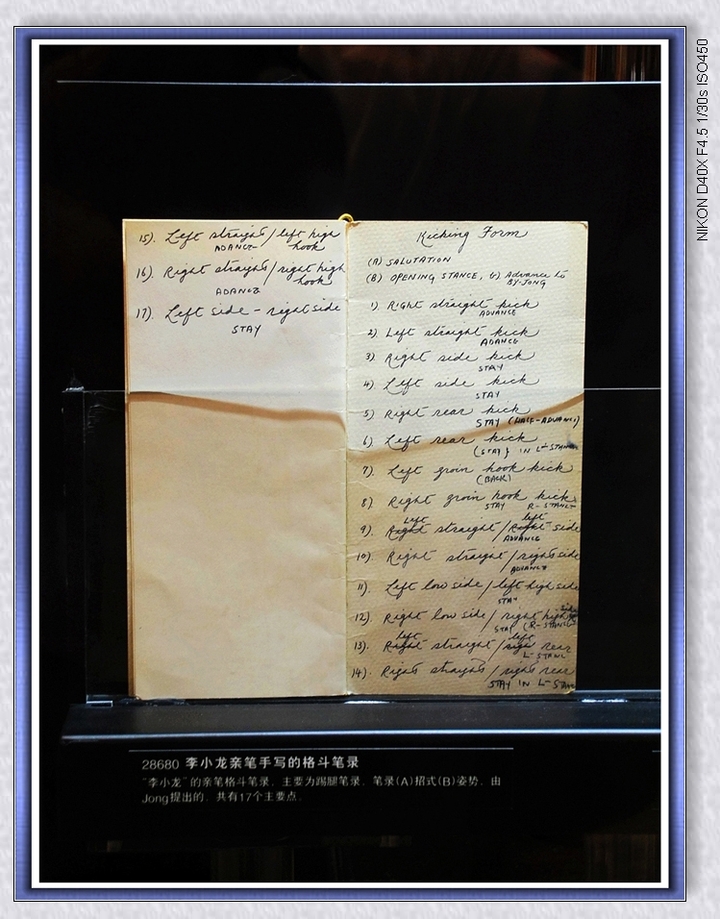 15). Left straight / left high
ADANCE- hook
16). Right straight / right high
hook
ADANCE
17). Left side - right side
STAY
Kicking Form
(A) SALUTATION
(B) OPENING STANCE, & Advance to
BY-JONG
1) Right straight kick
ADVANCE
2) Left straight kick
ADANCE
3) Right side kick
STAY
4) Left side kick
STAY
5) Right rear kick
STAY (HALF-ADVANCE)
6) Left rear kick
(STAY) IN L-STANCE
7) Left groin hook kick
(BACK)
8) Right groin hook kick
STAY R-STANCE
Left left
9) Right straight / Right side
ADVANCE
10) Right straight / right side
ADVANCE
11) Left low side / left high side
STAY
12). Right low side / right high
side
STAY (R-STANCE
left left
13). Right straight / right rear
L-STANCE
14). Right straight / right rear
STAY IN L-STANCE
28680 李小龙亲笔手写的格斗笔录
“李小龙”的亲笔格斗笔录，主要为踢腿笔录，笔录(A)招式(B)姿势，由
Jong提出的，共有17个主要点。
NIKON D40X F4.5 1/30s ISO450